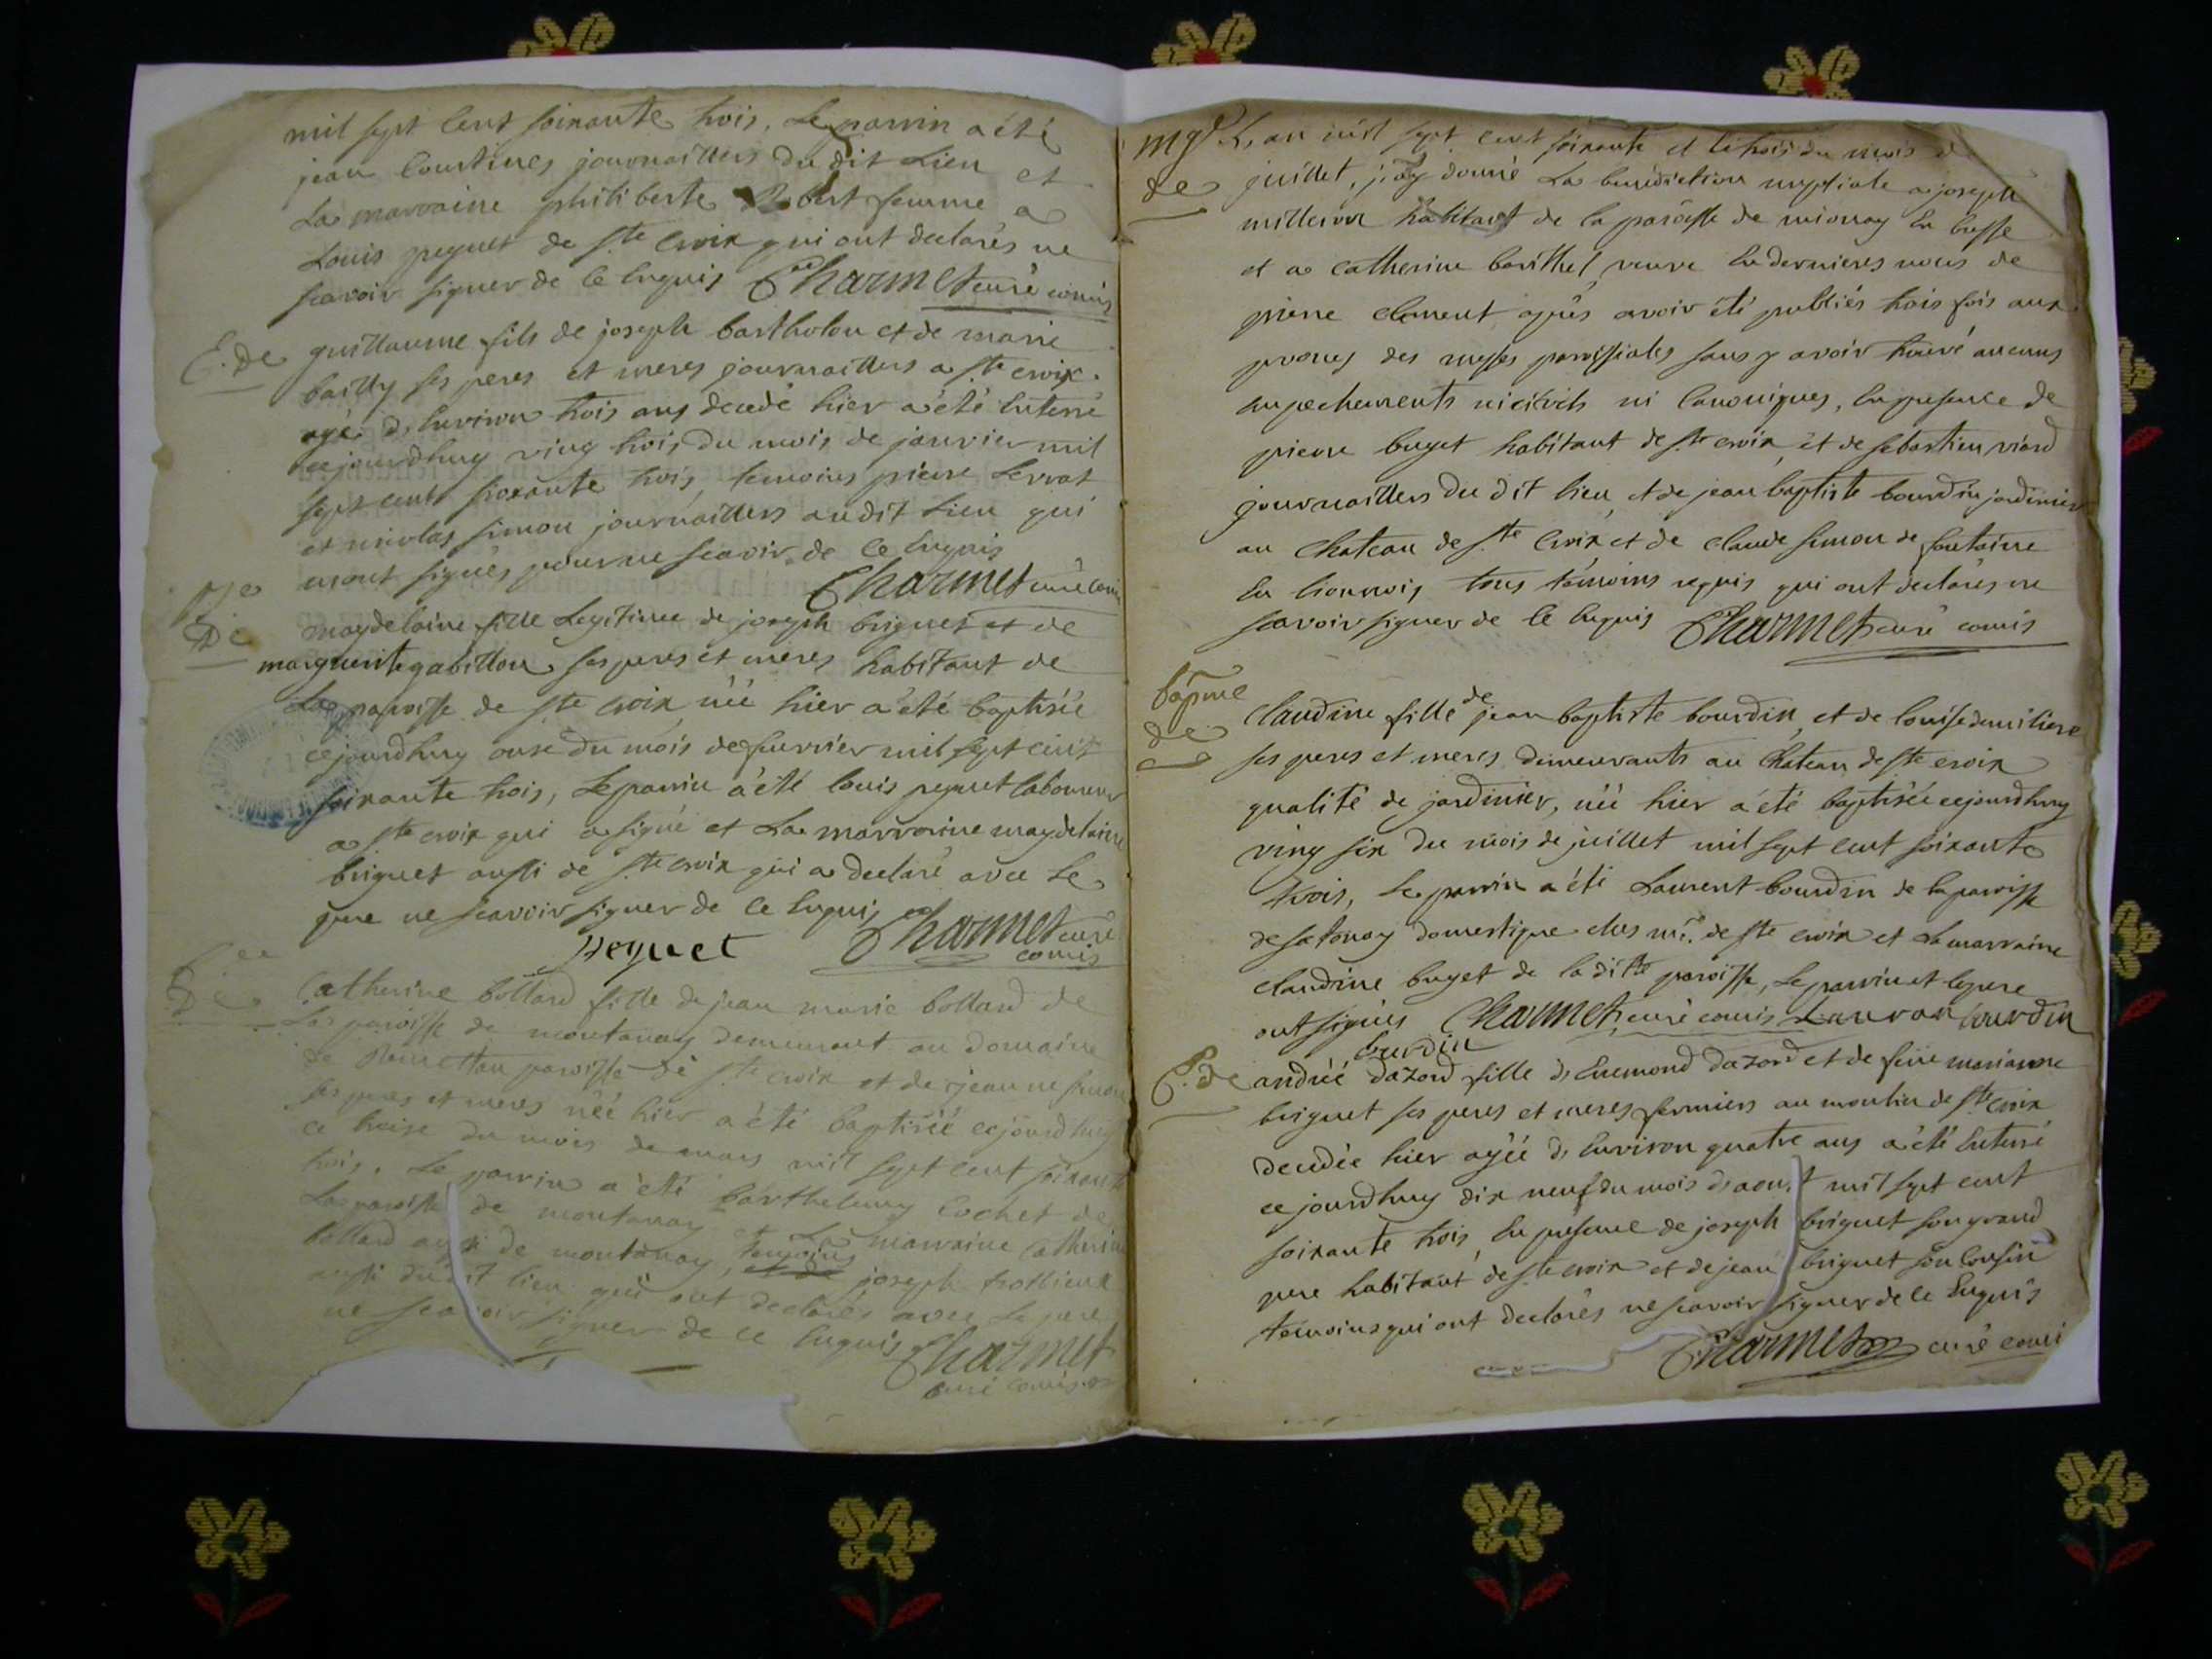 mil sept cent soixante trois, Le parrin a été
jean Coustines journaillers du dit Lieu et
La marraine philiberte femme a
Louis peguet de ste croix qui ont declarés ne
scavoir signer de ce Enquis Charmet curé comis
E. de guillaume fils de joseph bartholon et de marie
bailly ses peres et meres journaillers a ste croix
agé d'Environ trois ans decedé hier a été Enterré
cejourdhuy ving trois du mois de janvier mil
sept cents soixante trois, temoins pierre Servat
et nicolas simon journaillers audit Lieu qui
n'ont signés pour ne scavoir de ce Enquis
Charmet curé comis
De magdelaine fille Legitime de joseph briguet et de
marguerite gabillon ses peres et meres habitant de
La paroisse de ste croix néé hier a été baptiséé
cejourdhuy onse du mois de feuvrier mil sept cent
soixante trois, Le parrin a été louis peguet laboureur
a ste croix qui a signé et La marraine magdelaine
briguet aussi de ste croix qui a declaré avec Le
pere ne scavoir signer de ce Enquis Charmet curé
peguet comis
De Catherine bollard fille de jean marie bollard de
La paroisse de montanay demeurant au domaine
de paroisse de ste croix et de jeanne simon
ses peres et meres néé hier a été baptiséé cejourdhuy
ce treise du mois de mars mil sept cent soixante
trois. Le parrin a été barthelemy Cochet de
La paroisse de montanay et La marraine Catherine
bollard aussi de montanay, temoins joseph trollieux
aussi dudit lieu qui ont declarés avec Le pere
ne scavoir signer de ce Enquis Charmet
curé comis
mge L'an mil sept cent soixante et le trois du mois de
de juillet, j'ay donné La benediction nuptiale a joseph
milleron habitant de la paroisse de mionay En bresse
et a catherine barithel veuve En dernieres noces de
pierre clement après avoir été publiés trois fois aux
prones des messes paroissiales sans y avoir trouvé aucuns
Empechements ni civils ni Canoniques, En presence de
pierre buget habitant de ste croix, et de sebastien viard
journaillers du dit lieu, et de jean baptiste bourdin jardinier
au Chateau de ste Croix et de claude simon de fontaine
En lionnois tous témoins requis qui ont declarés ne
scavoir signer de ce Enquis Charmet curé comis
bapme
de claudine fille de jean baptiste bourdin, et de louise demiliere
ses peres et meres demeurants au Chateau de ste croix
qualité de jardinier, néé hier a été baptiséé cejourdhuy
ving six du mois de juillet mil sept cent soixante
trois, Le parrin a été Laurent bourdin de la paroisse
de satonay domestique ches mr. de ste croix et La marraine
claudine buget de la ditte paroisse, Le parrin et le pere
ont signés Charmet curé comis Lauran bourdin
bourdin
E. de andréé dazord fille d'Enemond dazord et de feüe marianne
briguet ses peres et meres fermiers au moulin de ste croix
decedée hier agéé d'Environ quatre ans a été Enterré
ce jourdhuy dix neuf du mois d'aoust mil sept cent
soixante trois, En presence de joseph briguet son grand
pere habitant de ste croix et de jean briguet son Cousin
temoins qui ont declarés ne scavoir signer de ce Enquis
Charmet curé comis